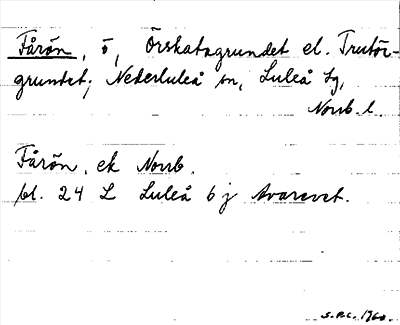 Fårön, ö, Örskatagrundet el. Trutör-
grundet; Nederluleå sn, Luleå tg,
Norrb. l.
Fårön, ek Norrb.
bl. 24 L Luleå 6 j Avarevet.
1960.